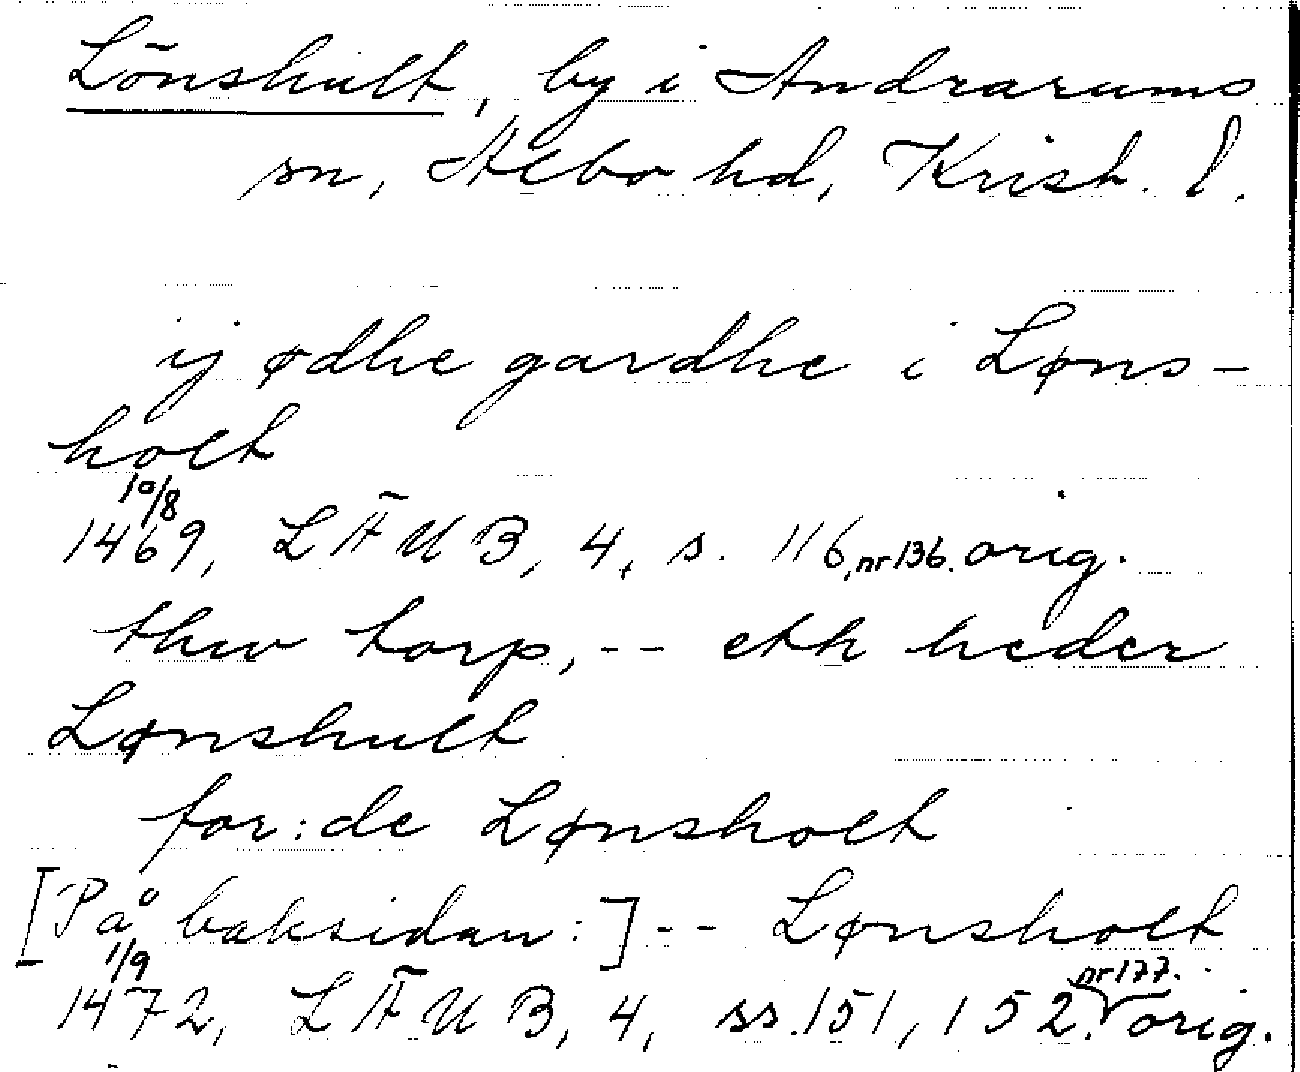 Lönshult, by i Andrarums
sn, Albo hd, Krist. l.
ij ødhe gardhe i Løns-
holt
10/8
1469, LÄUB, 4, s. 116, nr 136. orig.
thw torp, -- eth heder
Lønshult
for:de Lønsholt
[På baksidan:] -- Lønsholt
1/9
1472, LÄUB, 4, ss. 151, 152. nr 177. orig.